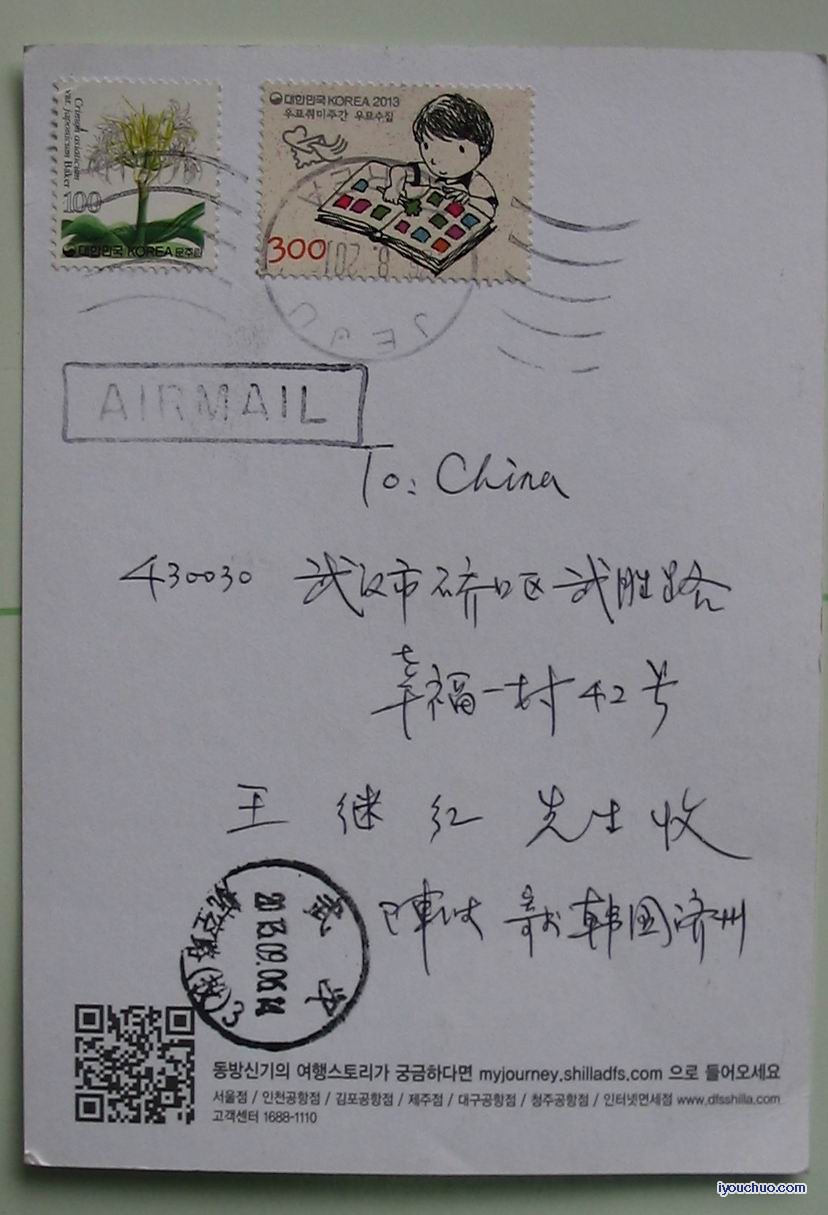 Crinum asiaticum
var. japonicum Baker
100
대한민국 KOREA 문주란
대한민국 KOREA 2013
우표취미주간 우표수집
300
JEJU
AIRMAIL
To: China
430030 武汉市硚口区武胜路
幸福一村42号
王继红 先生 收
韩国济州
武汉
2013.09.06
동방신기의 여행스토리가 궁금하다면 myjourney.shilladfs.com 으로 들어오세요
서울점 / 인천공항점 / 김포공항점 / 제주점 / 대구공항점 / 청주공항점 / 인터넷면세점 www.dfsshilla.com
고객센터 1688-1110
iyouchuo.com